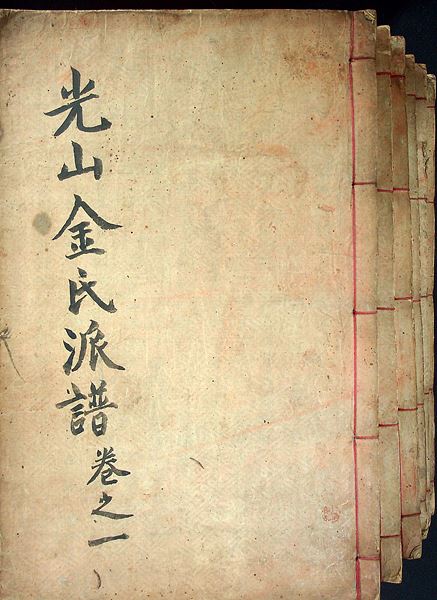 光山金氏派譜 卷之一